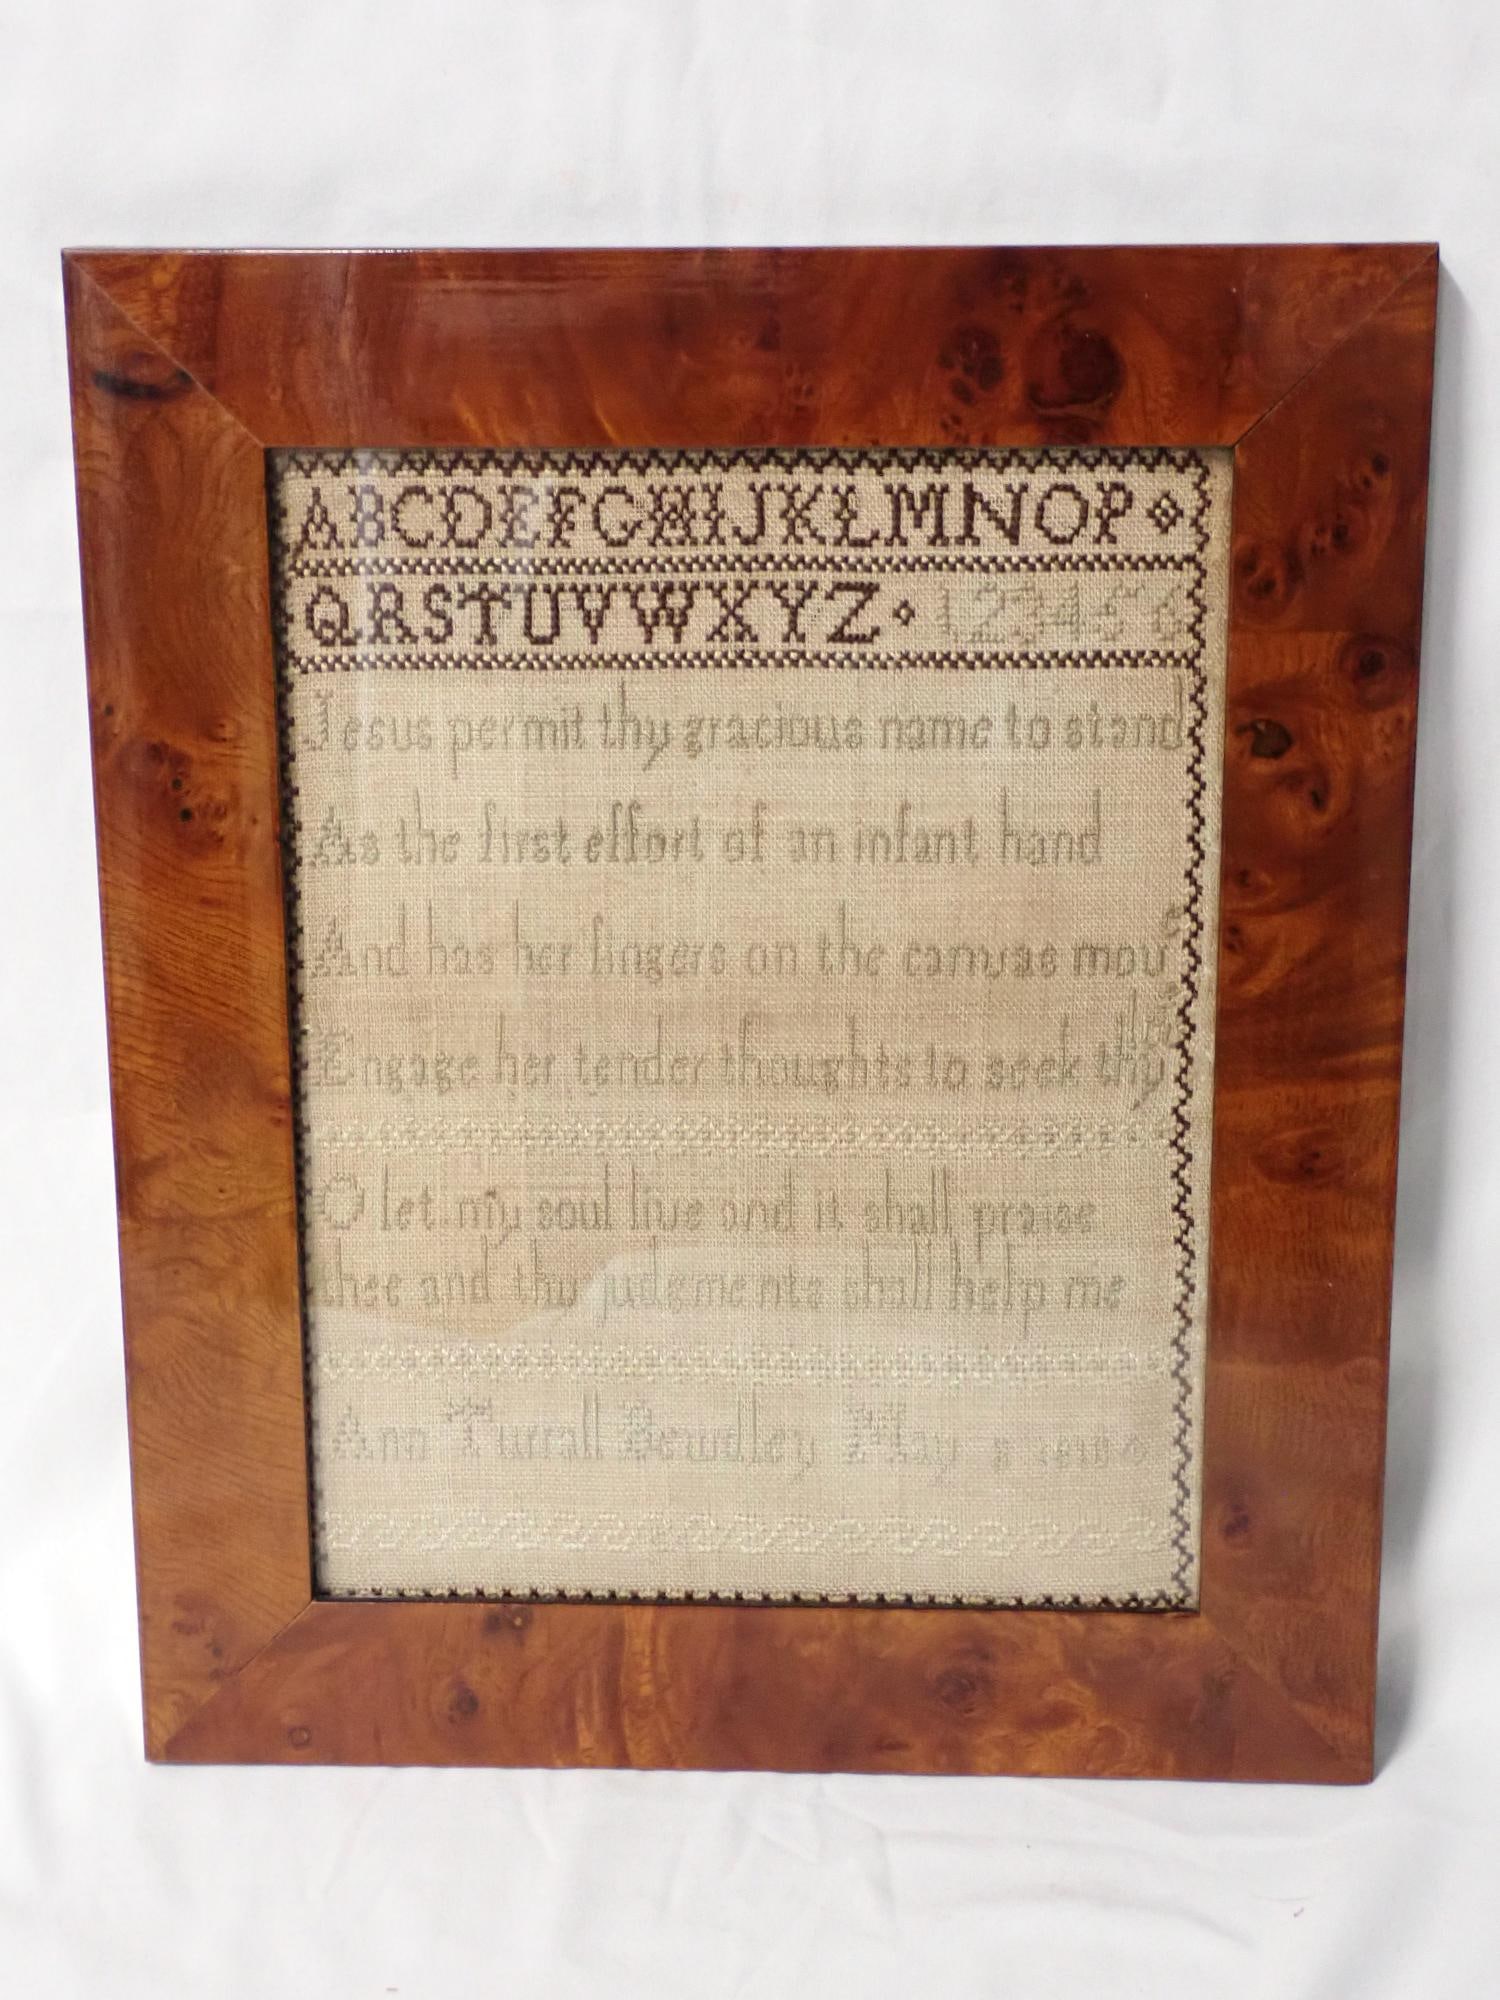 ABCDEFGHIJKLMNOP
QRSTUVWXYZ 123456
Jesus permit thy gracious name to stand
As the first effort of an infant hand
And has her fingers on the canvas move
Engage her tender thoughts to seek thy love
O let my soul live and it shall praise
thee and thy judgments shall help me
Ann Turrall Bewdley May